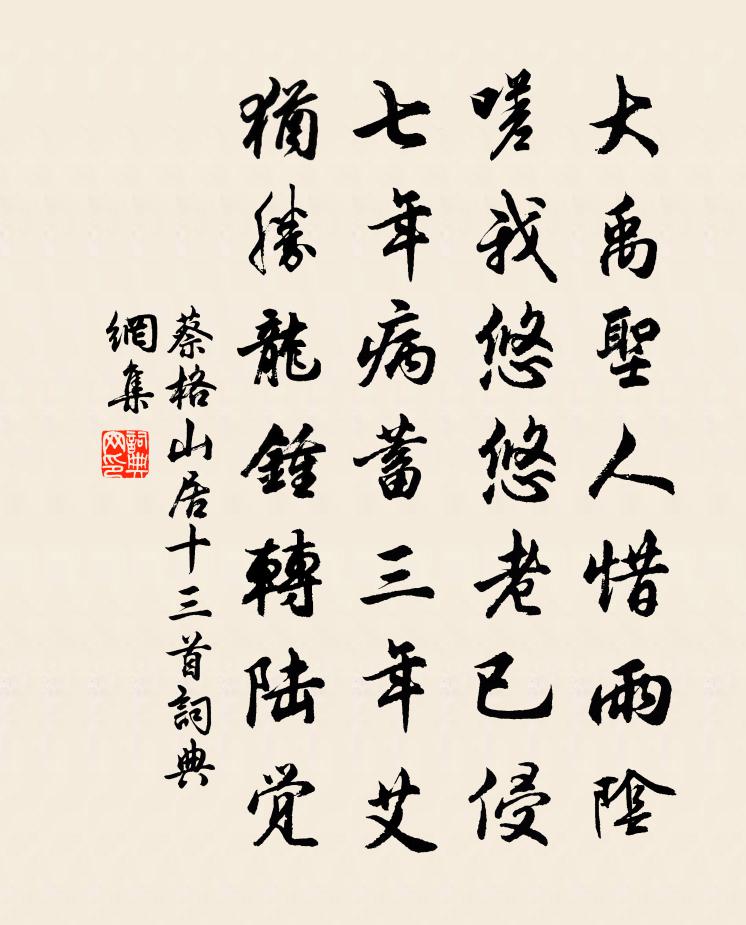 大禹聖人惜雨陰
嗟我悠悠老已侵
七年病蓄三年艾
猶勝龍鍾轉陆覚
蔡格山居十三首詞典
網集
詞典
网印